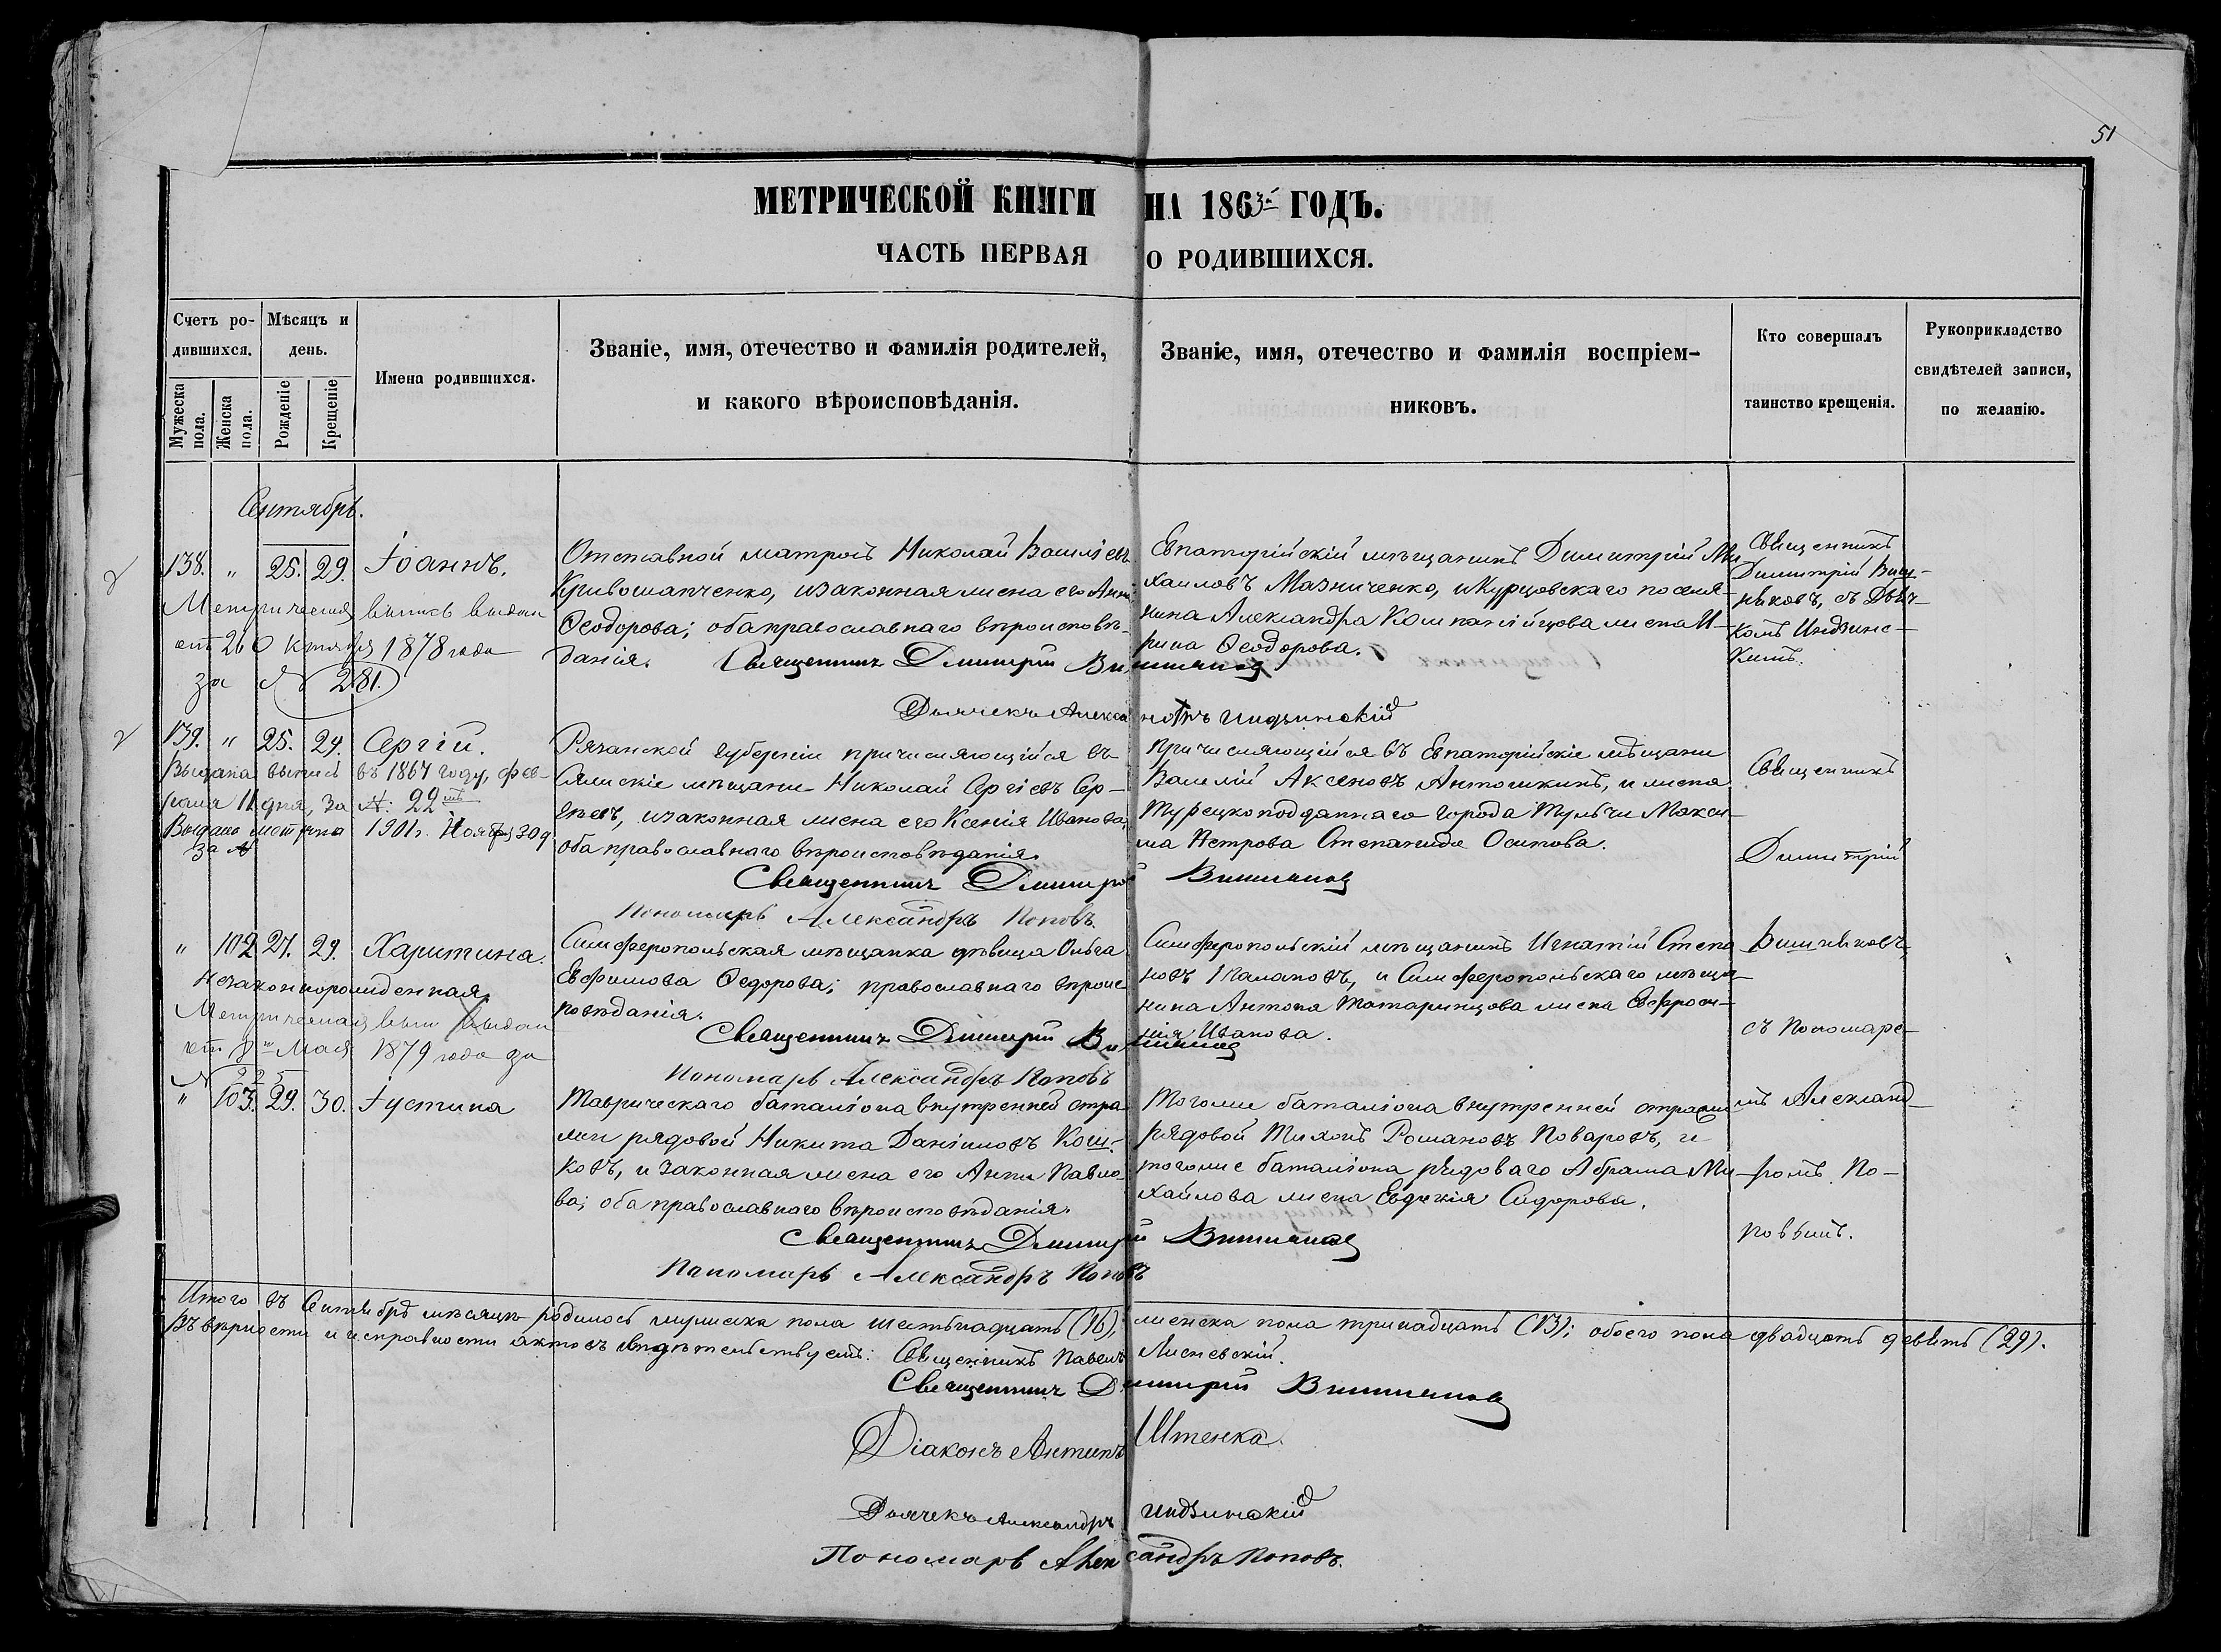 51
МЕТРИЧЕСКОЙ КНИГИ НА 1863й ГОДЪ.
ЧАСТЬ ПЕРВАЯ О РОДИВШИХСЯ.
Счетъ ро-
дившихся.
Мужеска пола.
Женска пола.
Мѣсяцъ и
день.
Рожденіе
Крещеніе
Имена родившихся.
Званіе, имя, отечество и фамилія родителей,
и какого вѣроисповѣданія.
Званіе, имя, отечество и фамилія воспріем-
никовъ.
Кто совершалъ
таинство крещенія.
Рукоприкладство
свидѣтелей записи,
по желанію.
Сентябрь.
138. " 25. 29. Іоаннъ.
Метрическая выпись выдана
отъ 26 Октября 1878 года
за № 281.
Отставной матросъ Николай Васильевъ
Кривошапченко, и законная жена его Анна
Ѳеодорова; оба православнаго вѣроисповѣ-
данія. Священникъ Димитрій Вишняков
Дьячекъ Александръ Индзинскій
Евпаторійскій мѣщанинъ Димитрій Ми-
хаиловъ Мазниченко, и Курцовскаго поселя-
нина Александра Компанійцова жена И-
рина Ѳеодорова.
Священникъ
Димитрій Виш-
няковъ, съ Дьяч-
комъ Индзинс-
кимъ.
139. " 25. 29. Сергій.
Выдана выпись въ 1867 году, фев-
раля 11 дня, за №: 22мъ
Выдана метрика 1901 г. Ноября 30 д.
за №
Рязанской губерніи причисляющійся въ
мѣщане Николай Сергіевъ Сер-
гѣевъ, и законная жена его Ксенія Иванова,
оба православнаго вѣроисповѣданія.
Священникъ Димитрій Вишняков
Пономарь Александръ Поповъ.
Причисляющійся въ Евпаторійскіе мѣщане
Василій Аксеновъ Антошкинъ, и жена
Турецкоподданнаго города Тульчи Макси-
ма Петрова Степанида Осипова.
Священникъ
Димитрій
" 102 27. 29. Харитина.
Незаконнорожденная.
Метрическая вып выдана
отъ 8го Мая 1879 года за
№ 225
Симферопольская мѣщанка дѣвица Ольга
Евфимова Ѳедорова; православнаго вѣроис-
повѣданія.
Священникъ Димитрій Вишняков
Пономарь Александръ Поповъ
Симферопольскій мѣщанинъ Игнатій Степа-
новъ Калановъ, и Симферопольскаго мѣща-
нина Антона Татаринцова жена Евфроси-
нія Иванова.
Вишняковъ,
съ Пономаре-
" 103. 29. 30. Іустина
Таврическаго баталіона внутренней стра-
жи рядовой Никита Даніиловъ Кош-
ковъ, и законная жена его Анна Павло-
ва; оба православнаго вѣроисповѣданія.
Священникъ Димитрій Вишняков
Пономарь Александръ Поповъ
Тогоже баталіона внутренней стражи
рядовой Тихонъ Романовъ Поваровъ, и
тогоже баталіона рядоваго Абрама Ми-
хайлова жена Евдокія Сидорова.
мъ Александ-
ромъ По-
повымъ.
Итого въ Сентябрѣ мѣсяцѣ родилось мужеска пола шестьнадцать (16); женска пола тринадцать (13); обоего пола двадцать девять (29).
Въ вѣрности и исправности актовъ свидѣтельствуемъ: Священникъ Павелъ Лисневскій.
Священникъ Димитрій Вишняков
Діаконъ Антипъ Штенка.
Дьячекъ Александръ Индзинскій
Пономарь Александръ Поповъ.